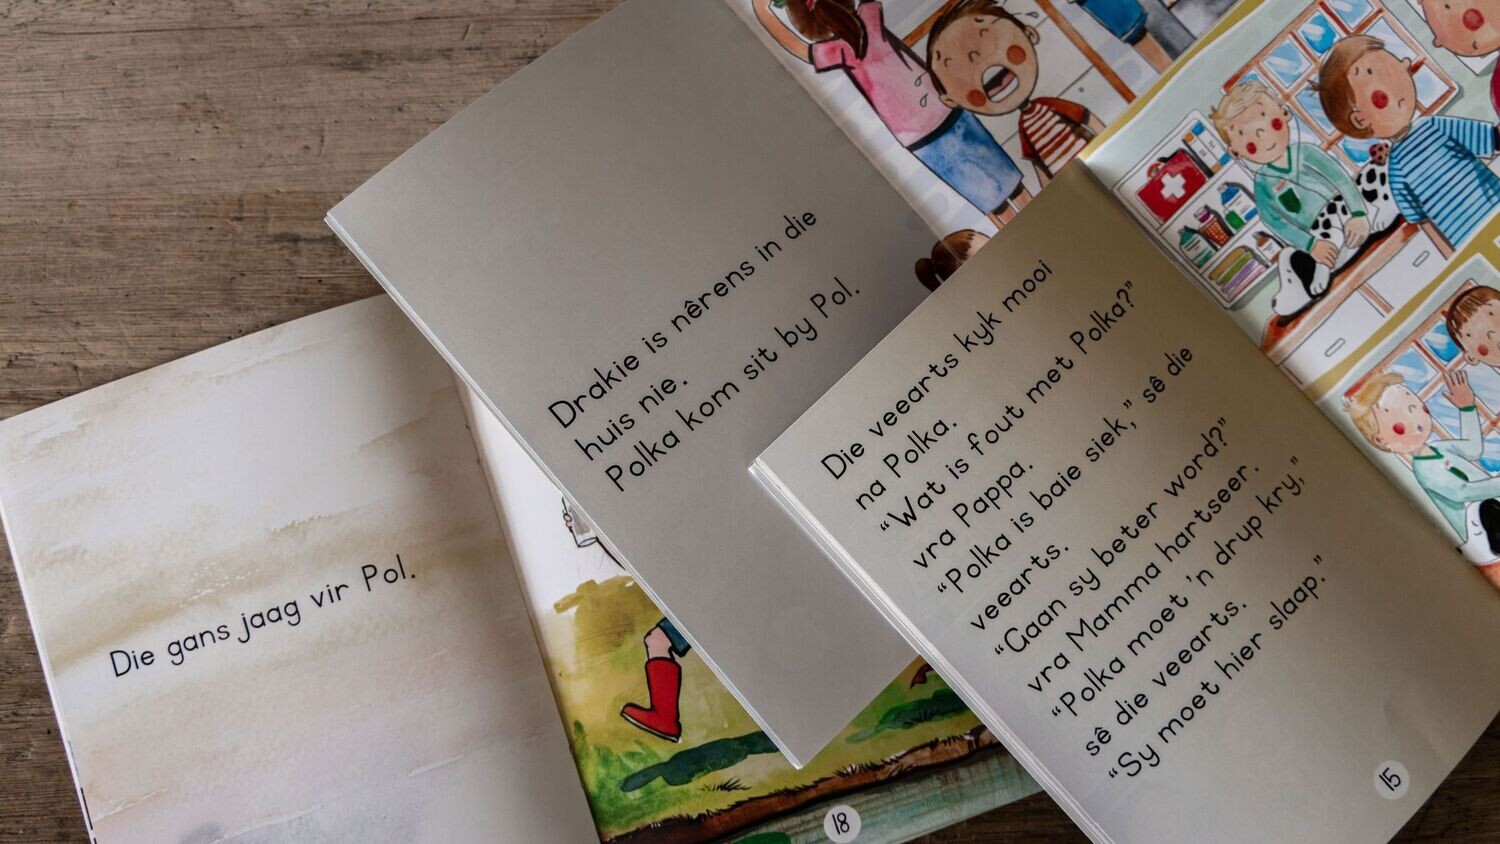 Die gans jaag vir Pol.
18
Drakie is nêrens in die
huis nie.
Polka kom sit by Pol.
Die veearts kyk mooi
na Polka.
“Wat is fout met Polka?”
vra Pappa.
“Polka is baie siek,” sê die
veearts.
“Gaan sy beter word?”
vra Mamma hartseer.
“Polka moet 'n drup kry,”
sê die veearts.
“Sy moet hier slaap.”
15